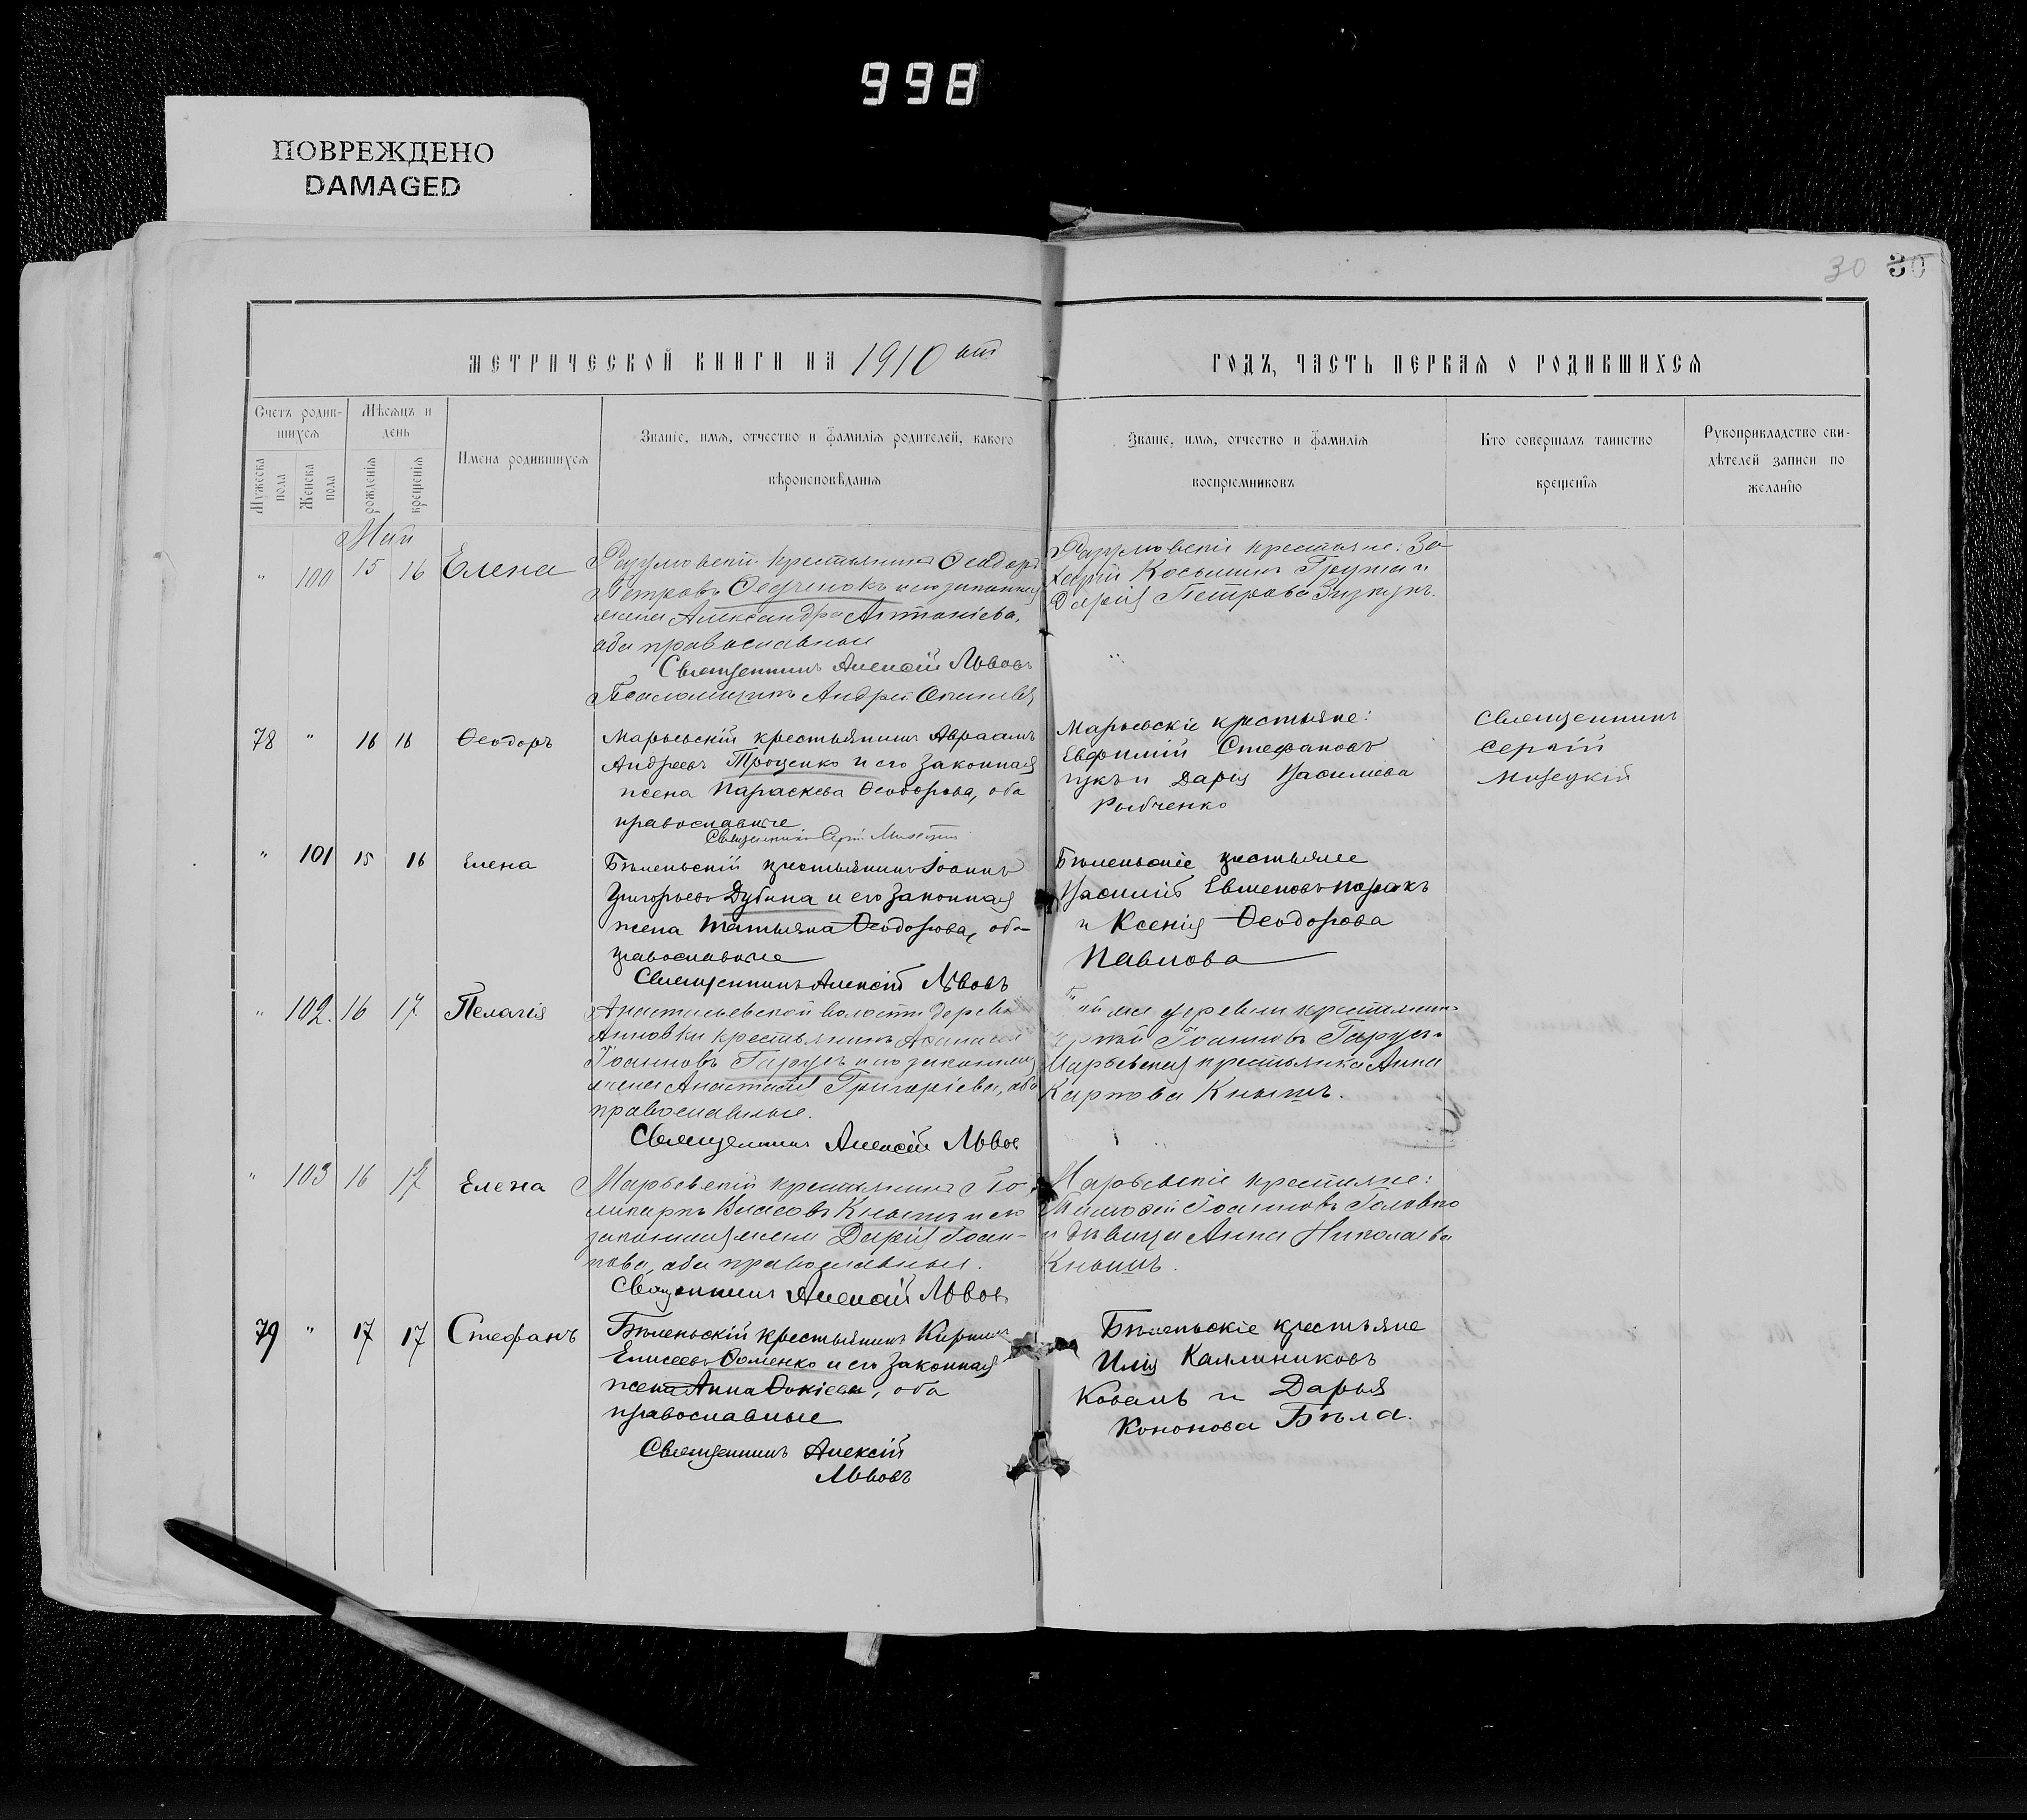 998
ПОВРЕЖДЕНО
DAMAGED
30 30
МЕТРИЧЕСКОЙ КНИГИ НА 1910 ый
ГОДЪ, ЧАСТЬ ПЕРВАЯ О РОДИВШИХСЯ
Счетъ родив-
шихся
Мѣсяцъ и
день
Мужеска
пола
Женска
пола
рожденія
крещенія
Имена родившихся
Званіе, имя, отчество и фамилія родителей, какого
вѣроисповѣданія
Званіе, имя, отчество и фамилія
воспріемниковъ
Кто совершалъ таинство
крещенія
Рукоприкладство сви-
дѣтелей записи по
желанію
Май
" 100 15 16 Елена
Разумовскій крестьянинъ Ѳеодоръ
Петровъ и его законная
жена Александра Антоніева,
оба православные
Священникъ Алексій Львовъ
Псаломщикъ Андрей
Разумовскіе крестьяне: За-
харій Косьминъ и
Дарія Петрова
78 " 16 16 Ѳеодоръ
Марьевскій крестьянинъ Авраамъ
Андреевъ Троценко и его законная
жена Параскева Ѳеодорова, оба
православные
Священникъ Сергій
Марьевскіе крестьяне:
Евфимій Стефановъ
и Дарія Василіева
Рыбченко
Священникъ
Сергій
" 101 15 16 Елена
Бѣленьскій крестьянинъ Іоаннъ
Григорьевъ Дубина и его законная
жена Татьяна Ѳеодорова, оба
православные
Священникъ Алексій Львовъ
Бѣленьскіе крестьяне
Василій Евменовъ
и Ксенія Ѳеодорова
Павлова
" 102. 16 17 Пелагія
волости
Анновки крестьянинъ
Іоанновъ и его законная
жена Анастасія Григоріева, оба
православные.
Священникъ Алексій Львовъ
деревни крестьянинъ
Іоанновъ
Марьевская крестьянка Анна
Карпова Кнышъ.
" 103 16 17 Елена
Марьевскій крестьянинъ По-
ликарпъ Власовъ Кнышъ и его
законная жена Дарія Іоан-
нова, оба православные.
Священникъ Алексій Львовъ
Марьевскіе крестьяне:
Тимоѳей Іоанновъ Головко
и дѣвица Анна Николаева
Кнышъ.
79 " 17 17 Стефанъ
Бѣленьскій крестьянинъ Кириллъ
Елисеевъ Ѳоменко и его законная
жена Анна, оба
православные
Священникъ Алексій
Львовъ
Бѣленьскіе крестьяне
Илія Каллиниковъ
Коваль и Дарья
Кононова Бѣла.